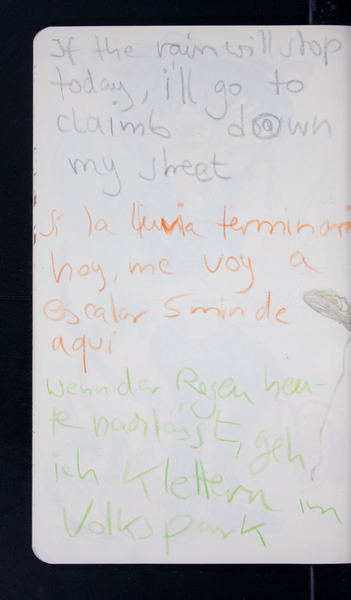 If the rain will stop
today, i'll go to
claimb down
my street
Si la lluvia terminara
hoy, me voy a
escalar 5 min de
aquí
Wenn der Regen heu-
te nachlässt, geh
ich Klettern im
Volkspark